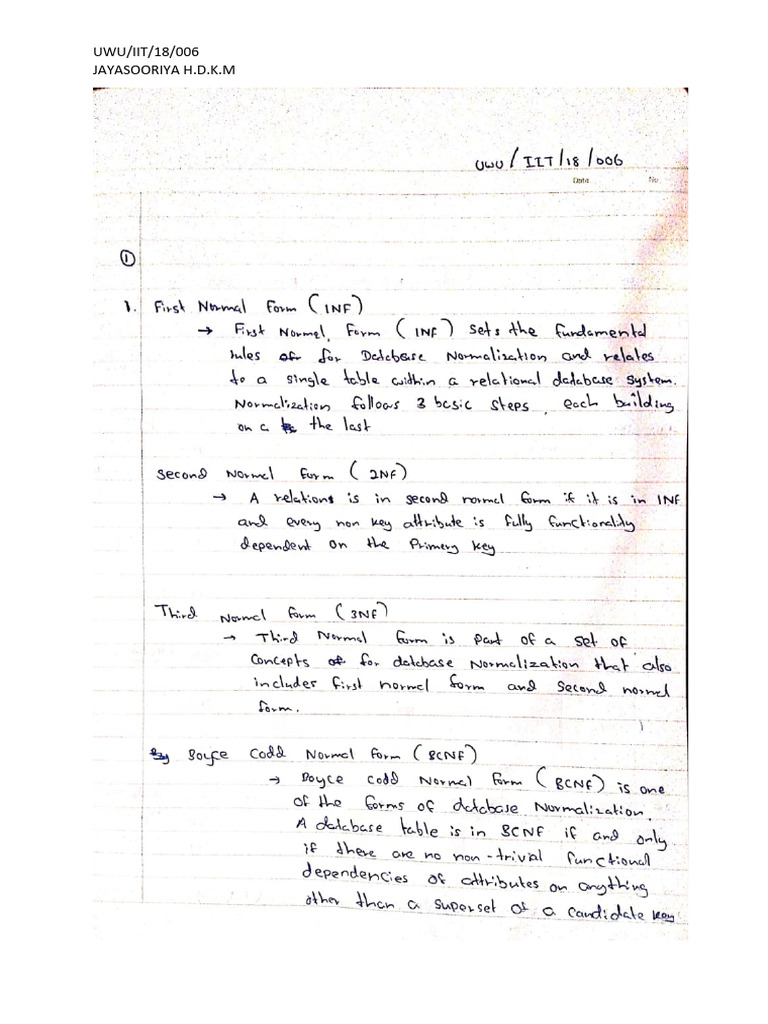 UWU/IIT/18/006
JAYASOORIYA H.D.K.M
UWU/IIT/18/006
Date No
①
1. First Normal Form (1NF)
→ First Normal, Form (1NF) sets the fundamental
rules of for Database Normalization and relates
to a single table within a relational database system.
Normalization follows 3 basic steps, each building
on a the last
Second Normal Form (2NF)
→ A relations is in second normal form if it is in 1NF
and every non key attribute is fully functionality
dependent on the Primary key
Third Normal Form (3NF)
→ Third Normal Form is part of a set of
Concepts of for database Normalization that also
includes first normal form and second normal
form.
Boyce Codd Normal Form (BCNF)
→ Boyce codd Normal Form (BCNF) is one
of the forms of database Normalization.
A database table is in BCNF if and only
if there are no non-trivial functional
dependencies of attributes on anything
other than a superset of a candidate key